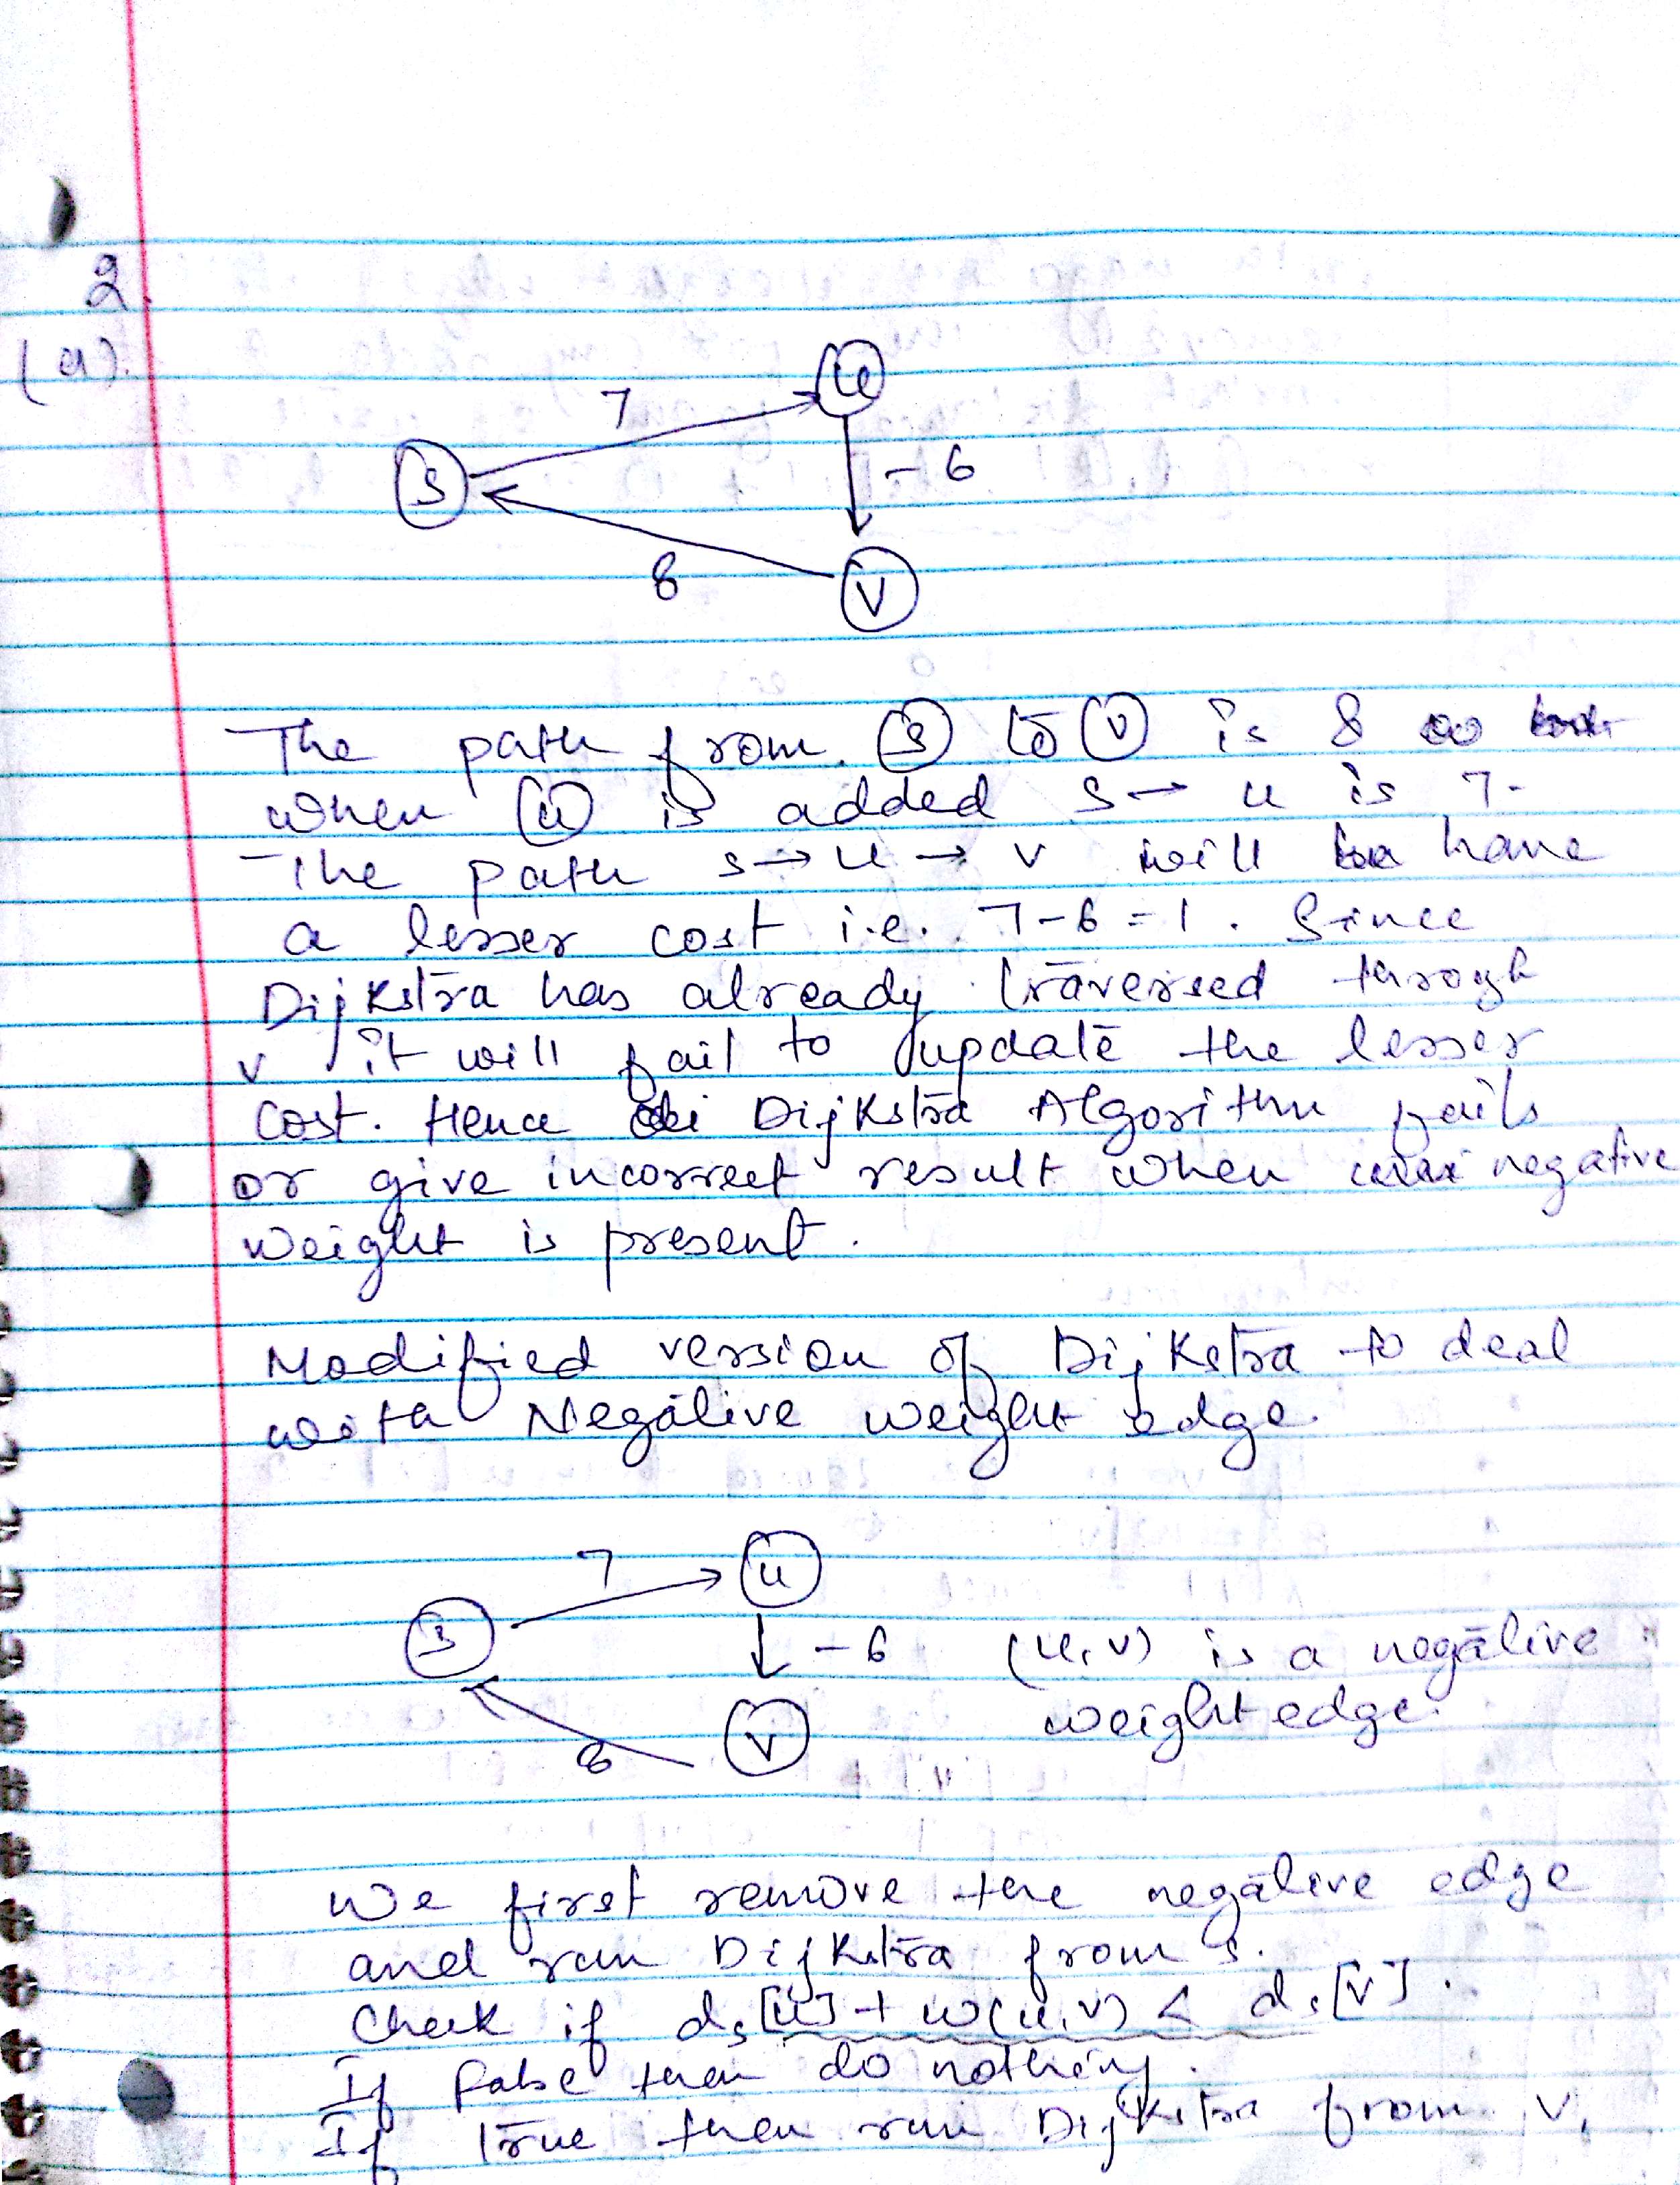 2.
(a).
7
u
s
- 6
8
v
The path from s to v is 8 so
when u is added s → u is 7.
The path s → u → v will have
a lesser cost i.e. 7-6=1. Since
Dijkstra has already traversed through
v it will fail to update the lesser
cost. Hence Dijkstra Algorithm fails
or give incorrect result when negative
weight is present.
Modified version of Dijkstra to deal
with Negative weight edge.
7
u
s
- 6 (u,v) is a negative
weight edge.
8
v
We first remove the negative edge
and run Dijkstra from s.
Check if ds[u] + w(u,v) < ds[v].
If false then do nothing.
If true then run Dijkstra from v,